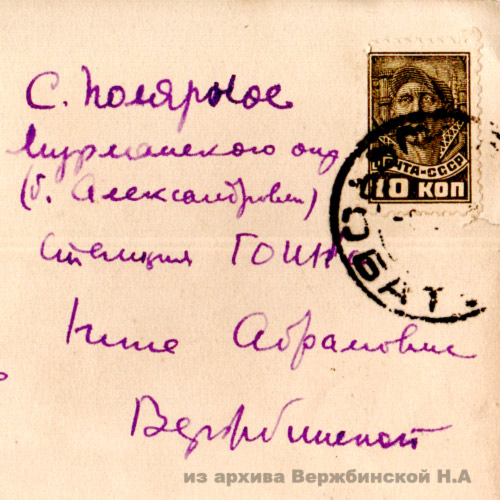 С. Полярное
Мурманского окр
(б. Александровск)
Станция ГОИН
Нине Абрамовне
Вержбинской
ПОЧТА-СССР
10 КОП
ОБАТ
из архива Вержбинской Н.А